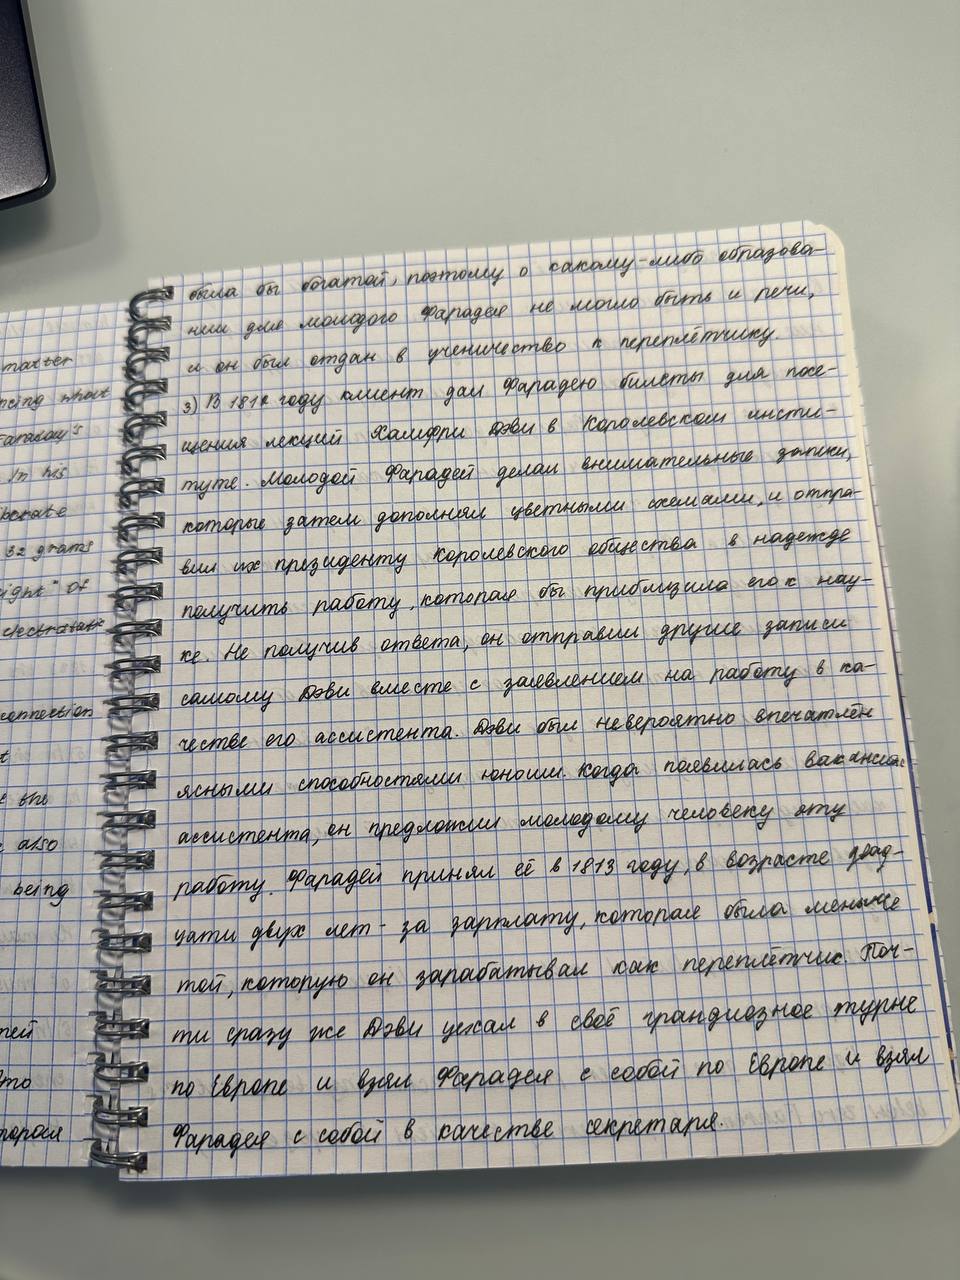 matter
ncing what
Faraday's
In his
iberate
32 grams
ight" of
electrostatic
connection
t
the
also
being
тей
Это
торая
была бы богатой, поэтому о какому-либо образова-
нии для молодого Фарадея не могло быть и речи,
и он был отдан в ученичество к переплётчику.
3) В 1812 году клиент дал Фарадею билеты для посе-
щения лекций Хамфри Дэви в Королевском инсти-
туте. Молодой Фарадей делал внимательные записки,
которые затем дополнял цветными схемами, и отпра-
вил их президенту Королевского общества в надежде
получить работу, которая бы приблизила его к нау-
ке. Не получив ответа, он отправил другие записи
самому Дэви вместе с заявлением на работу в ка-
честве его ассистента. Дэви был невероятно впечатлён
ясными способностями юноши. Когда появилась вакансия
ассистента, он предложил молодому человеку эту
работу. Фарадей принял её в 1813 году, в возрасте двад-
цати двух лет - за зарплату, которая была меньше
той, которую он зарабатывал как переплётчик. Поч-
ти сразу же Дэви уехал в своё грандиозное турне
по Европе и взял Фарадея с собой по Европе и взял
Фарадея с собой в качестве секретаря.